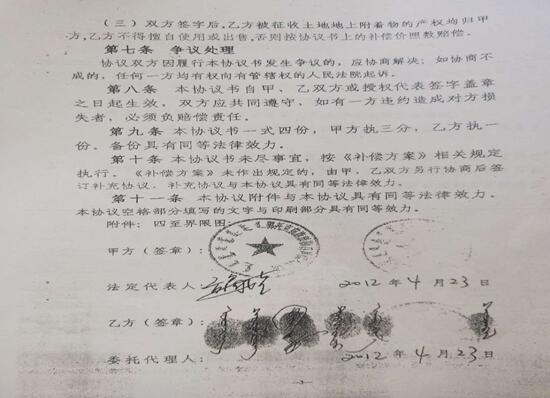 （三）双方签字后，乙方被征收土地地上附着物的产权均归甲
方，乙方不得擅自使用或出售，否则按协议书上的补偿价照数赔偿。
第七条 争议处理
协议双方因履行本协议书发生争议的，应协商解决；如协商不
成的，任何一方均有权向有管辖权的人民法院起诉。
第八条 本协议书自甲、乙双方或授权代表签字盖章
之日起生效，双方应共同遵守，如有一方违约造成对方损
失者，必须负赔偿责任。
第九条 本协议书一式四份，甲方执三分，乙方执一
份。备份具有同等法律效力。
第十条 本协议书未尽事宜，按《补偿方案》相关规定
执行。《补偿方案》未作出规定的，由甲、乙双方另行协商后签
订补充协议，补充协议与本协议具有同等法律效力。
第十一条 本协议附件与本协议具有同等法律效力。
本协议空格部分填写的文字与印刷部分具有同等效力。
附件：四至界限图：
甲方（签章）：
法定代表人：
2012年4月23日
乙方（签章）：
委托代理人：
2012年4月23日
-3-